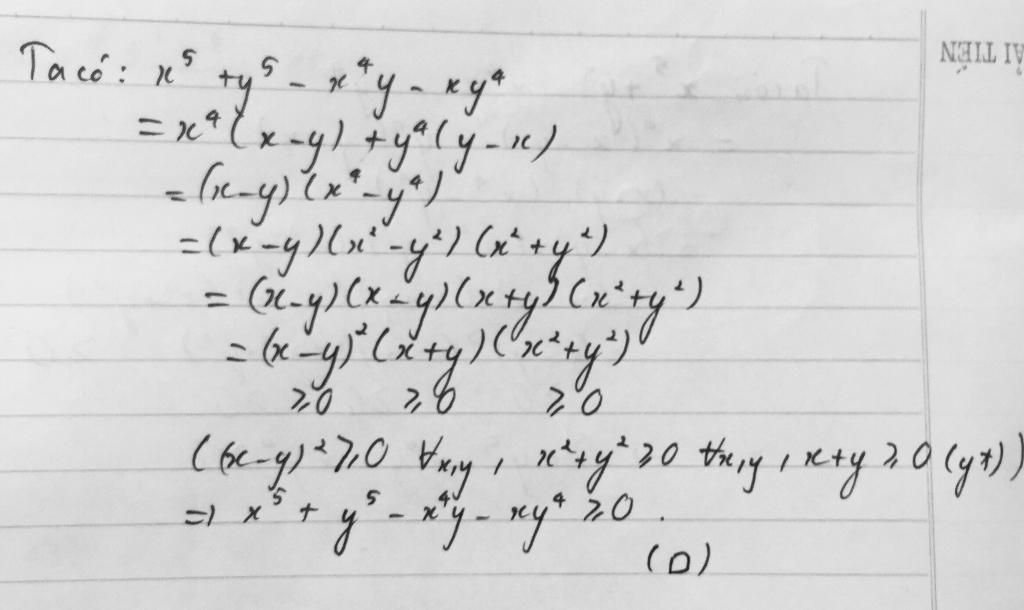 Ta có: x⁵ + y⁵ - x⁴y - xy⁴
= x⁴(x-y) + y⁴(y-x)
= (x-y)(x⁴-y⁴)
= (x-y)(x²-y²)(x²+y²)
= (x-y)(x-y)(x+y)(x²+y²)
= (x-y)²(x+y)(x²+y²)
⩾0 ⩾0 ⩾0
((x-y)²⩾0 ∀x,y, x²+y²⩾0 ∀x,y, x+y⩾0 (yt))
=> x⁵ + y⁵ - x⁴y - xy⁴ ⩾0.
(□)
ẢI TIẾN